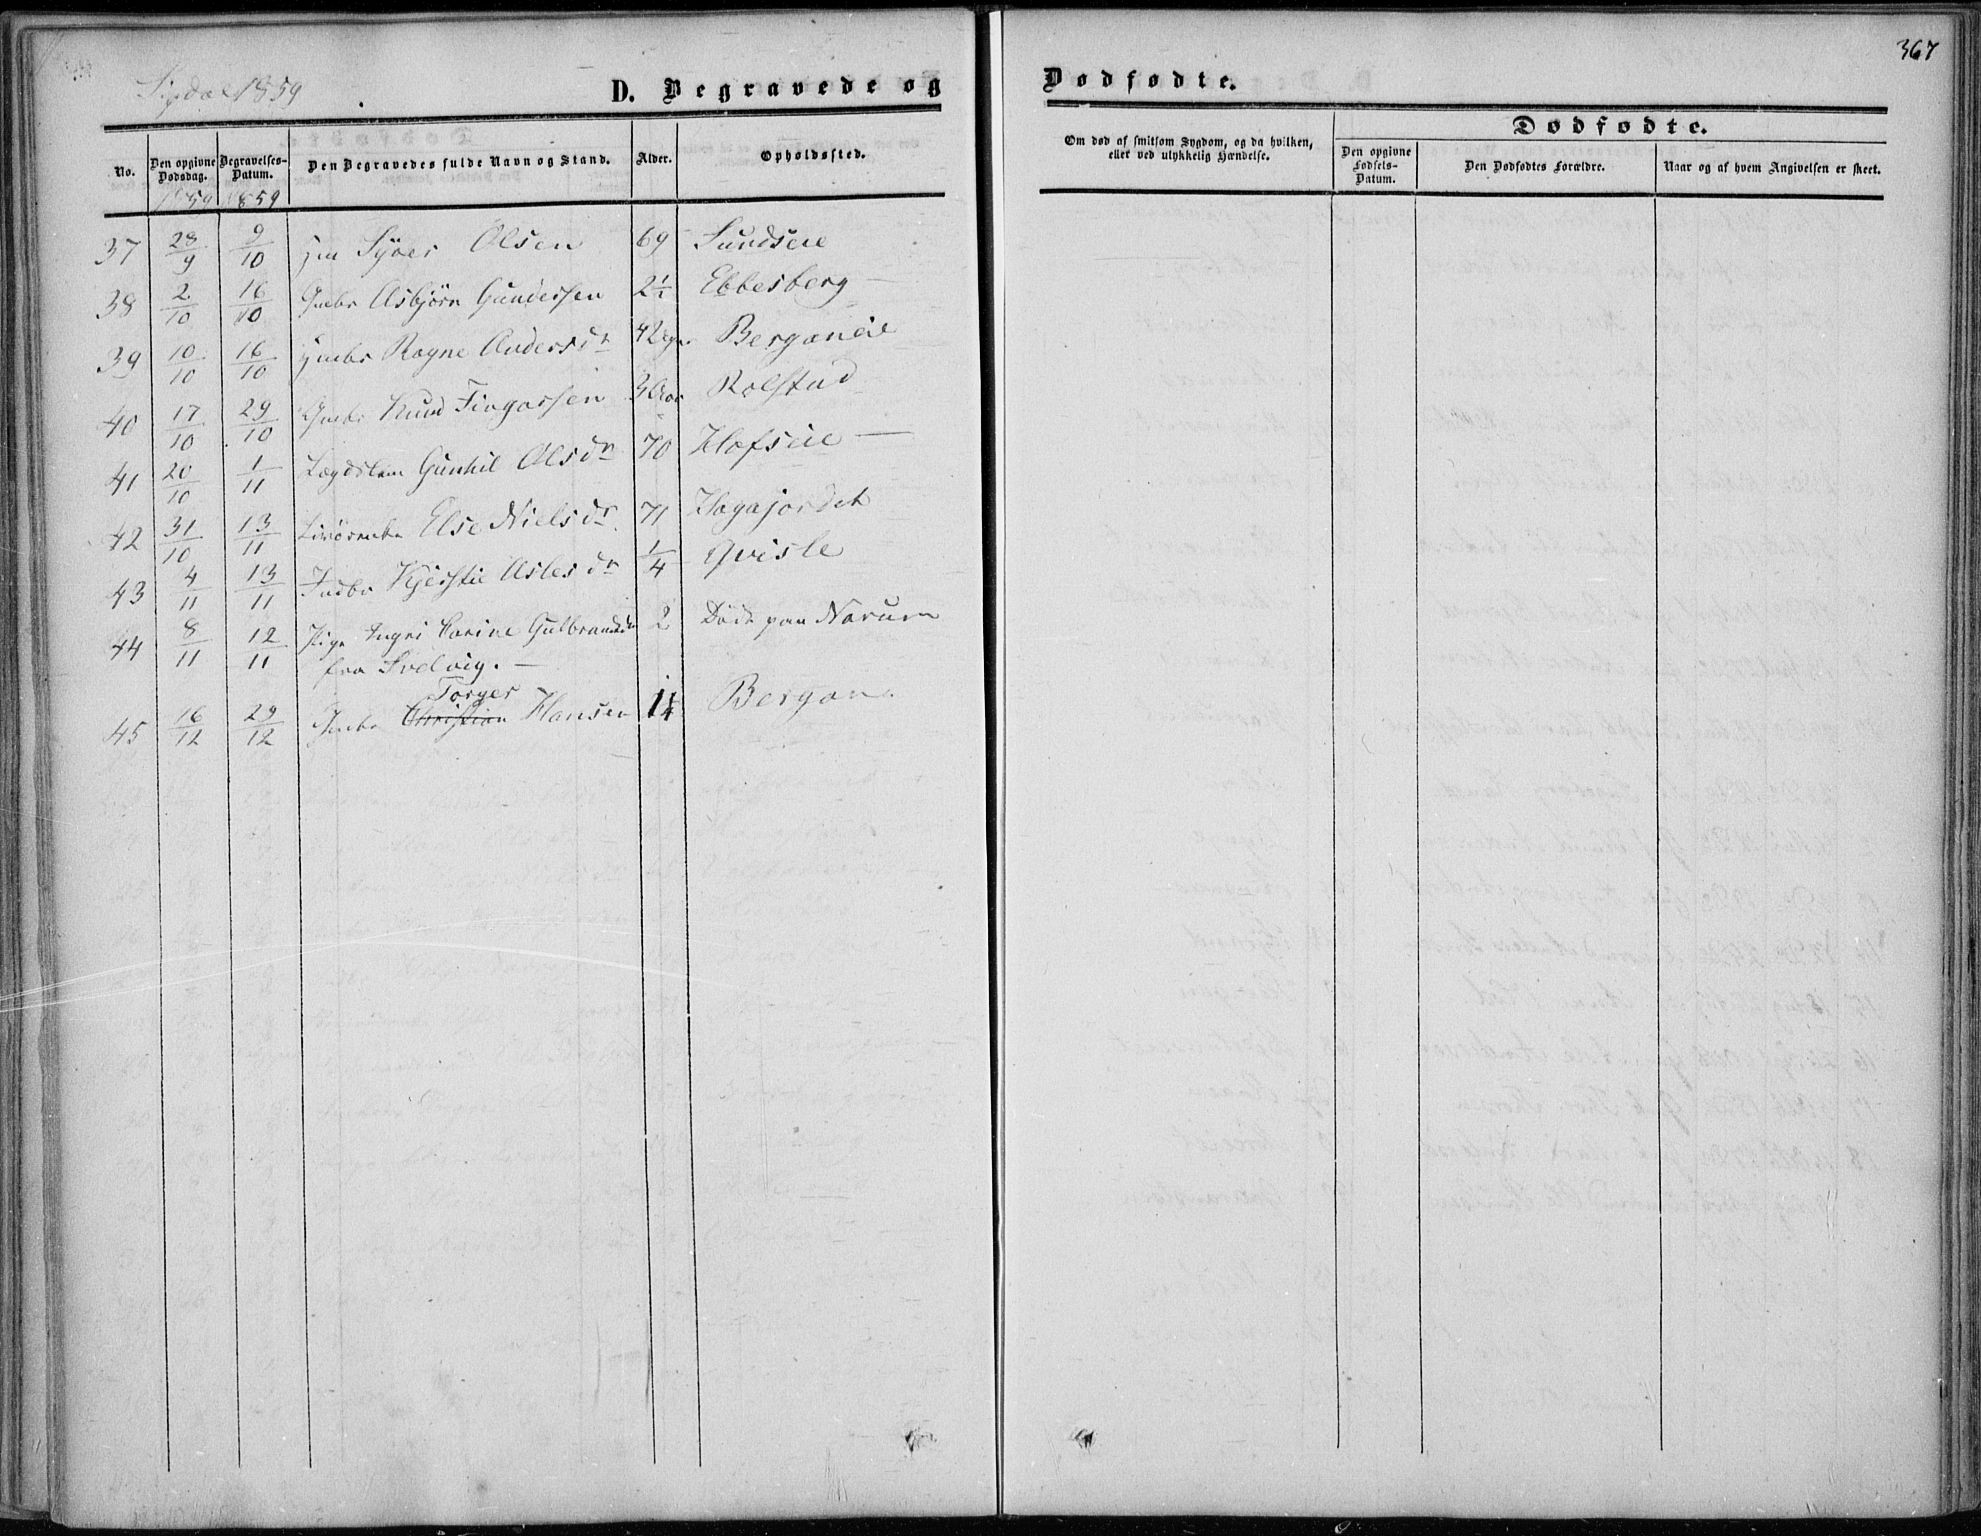 367
Sigdal 1859
D. Begravede og Dødfødte.
No. Den opgivne Dødsdag. Begravelses-Datum. Den Begravedes fulde Navn og Stand. Alder. Opholdssted.
Om død af smitsom Sygdom, og da hvilken, eller ved ulykkelig Hændelse.
Dødfødte.
Den opgivne Fødsels-Datum. Den Dødfødtes Forældre. Naar og af hvem Angivelsen er skeet.
1859 1859
37 28/9 9/10 Syver Olsen 69 Sundseie
38 2/10 16/10 Gmbr Asbjørn Gundersen 2½ Ebbesberg —
39 10/10 16/10 Hmbr Ragne Andersdr 42 Berganeie
40 17/10 29/10 Gmbr Knud Fingarsen 3 Rolstad
41 20/10 1/11 Lægdslem Gunhil Olsdr 70 Hofseie —
42 31/10 13/11 Else Nielsdr 71 Hagajordet
43 4/11 13/11 Indbr Kjerstie Aslesdr 1/4 Qvisle
44 8/11 12/11 Pige Ingri Carine Gulbrandsdr 2 Døde paa Narum
fra Svelvig. —
Torger
45 16/12 29/12 Gmbr Christian Hansen Bergan.